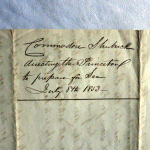 Commodore Shubrick
directing the Princeton
to prepare for Sea
July 8th 1853